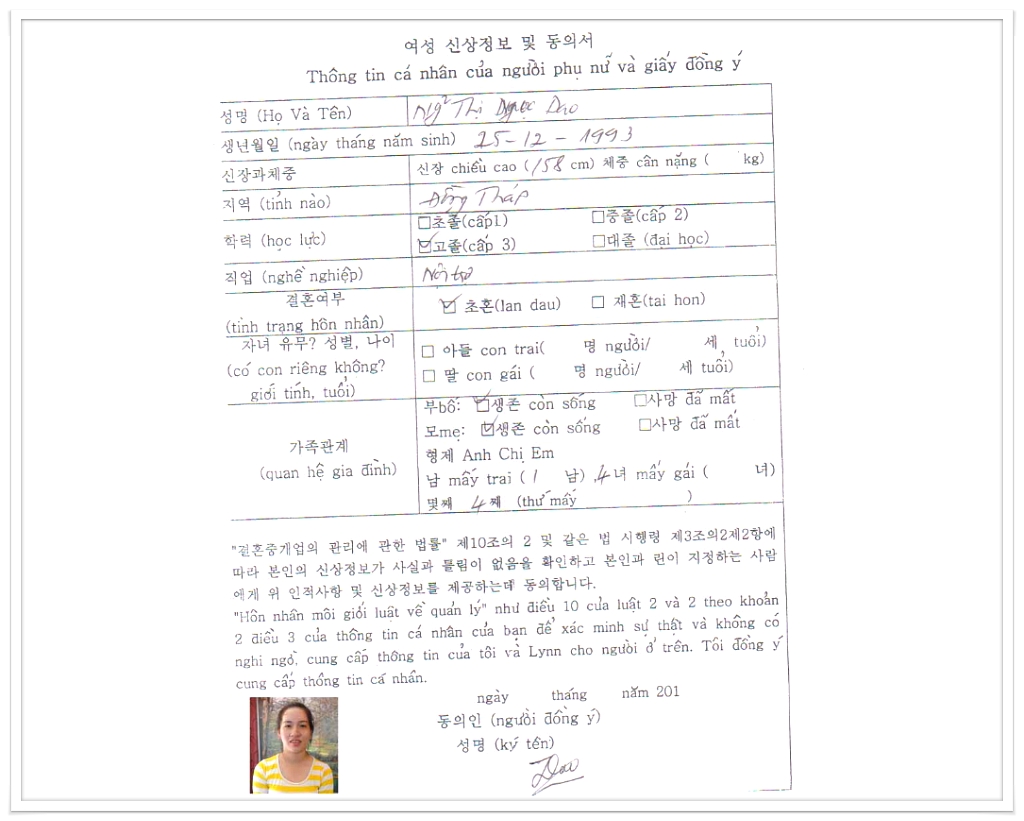 여성 신상정보 및 동의서
Thông tin cá nhân của người phụ nữ và giấy đồng ý
성명 (Họ Và Tên) Ng² Thị Ngọc Dao
생년월일 (ngày tháng năm sinh) 25-12-1993
신장과체중 신장 chiều cao (158 cm) 체중 cân nặng ( kg)
지역 (tỉnh nào) Đồng Tháp
학력 (học lực) □초졸(cấp1) □중졸(cấp 2)
☑고졸(cấp 3) □대졸 (đại học)
직업 (nghề nghiệp) Nội trợ
결혼여부 ☑ 초혼(lan dau) □ 재혼(tai hon)
(tình trạng hôn nhân)
자녀 유무? 성별, 나이 □ 아들 con trai( 명 người/ 세, tuổi)
(có con riêng không? □ 딸 con gái ( 명 người/ 세 tuổi)
giới tính, tuổi)
부bố: ☑생존 còn sống □사망 đã mất
모mẹ: ☑생존 còn sống □사망 đã mất
가족관계 형제 Anh Chị Em
(quan hệ gia đình) 남 mấy trai ( 1 남) ,4녀 mấy gái ( 녀)
몇째 4째 (thứ mấy )
"결혼중개업의 관리에 관한 법률" 제10조의 2 및 같은 법 시행령 제3조의2제2항에
따라 본인의 신상정보가 사실과 틀림이 없음을 확인하고 본인과 린이 지정하는 사람
에게 위 인적사항 및 신상정보를 제공하는데 동의합니다.
"Hôn nhân môi giới luật về quản lý" như điều 10 của luật 2 và 2 theo khoản
2 điều 3 của thông tin cá nhân của bạn để xác minh sự thật và không có
nghi ngờ, cung cấp thông tin của tôi và Lynn cho người ở trên. Tôi đồng ý
cung cấp thông tin cá nhân.
ngày tháng năm 201
동의인 (người đồng ý)
성명 (ký tên)
Dao